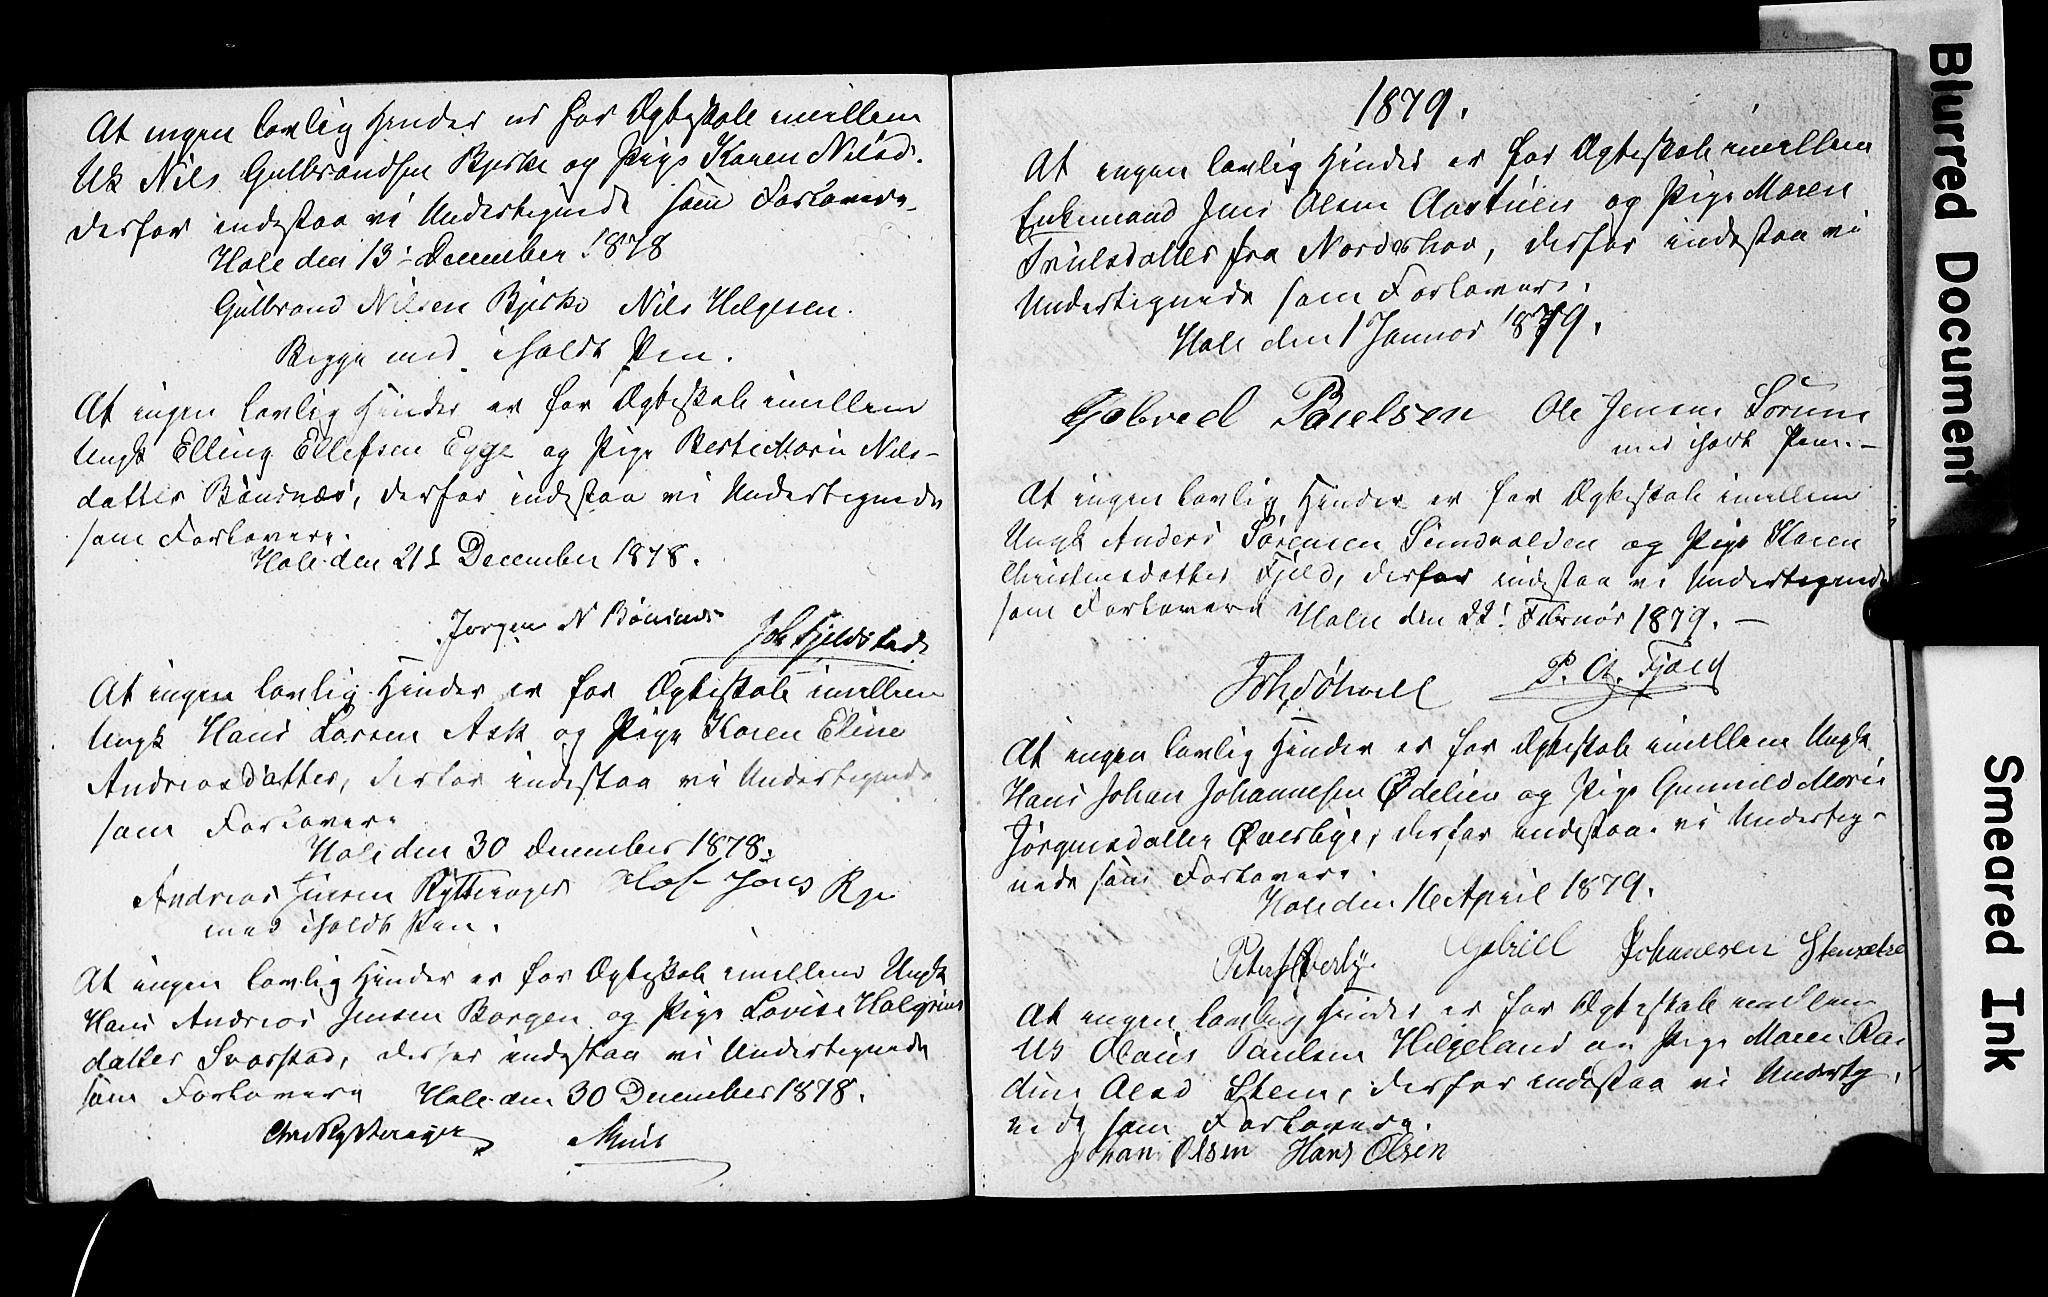 At ingen lovlig Hinder er for Ægteskab imellem
Uk Nils Gulbrandsen Bjerke og Pige Karen Nilsd.
derfor indestaa vi Undertegnede som Forlovere
Hole den 13 December 1878
Gulbrand Nilsen Bjerke Nils Helgesen.
Begge med iholdt Pen.
At ingen lovlig Hinder er for Ægteskab imellem
Ungk Elling Ellefsen Egge og Pige Berte Marie Nils-
datter Bönsnæs, derfor indestaa vi Undertegnede
som Forlovere.
Hole den 21 December 1878.
Jørgen N Bönsnæs Joh Fjeldstad
At ingen lovlig Hinder er for Ægteskab imellem
Ungk Hans Larsen Ask og Pige Karen Eline
Andreasdatter, derfor indestaa vi Undertegnede
som Forlovere
Hole den 30 December 1878.
Andreas Jensen Rytterager
med iholdt Pen.
At ingen lovlig Hinder er for Ægteskab imellem Ungk
Hans Andreas Jensen Borgen og Pige Lovise Halgrims
datter Svarstad, derfor indestaa vi Undertegnede
som Forlovere Hole den 30 December 1878.
Chr Rytterager
1879.
At ingen lovlig Hinder er for Ægteskab imellem
Enkemand Jens Olsen Aastuen og Pige Maren
Trulsdatter fra Norderhov, derfor indestaa vi
Undertegnede som Forlovere.
Hole den 1 Januar 1879.
Gabriel Paulsen Ole Jensen Sørum
med iholdt Pen.-
At ingen lovlig Hinder er for Ægteskab imellem
Ungk Anders Sörensen Sundvolden og Pige Karen
Christensdatter Fjeld, derfor indestaa vi Undertegnede
som Forlovere Hole den 22 Februar 1879. -
P. A. Fjeld
At ingen lovlig Hinder er for Ægteskab imellem Ungk
Hans Johan Johannesen Ødelien og Pige Gunnild Marie
Jörgensdatter Øverbye, derfor indestaa vi Underteg-
nede som Forlovere.
Hole den 16 April 1879.
Gabriel Johannesen Stensætre
At ingen lovlig Hinder er for Ægteskab imellem
Uk Olaus Paulsen Helgeland og Pige Maren
Stem, derfor indestaa vi Underteg-
nede som Forlovere.
Johan Olsen Hans Olsen
Blurred Document
Smeared Ink